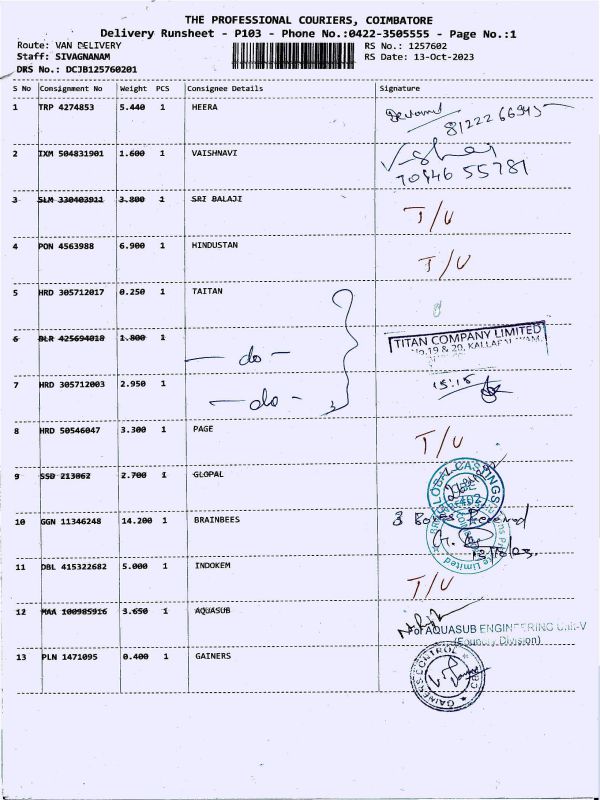 THE PROFESSIONAL COURIERS, COIMBATORE
Delivery Runsheet - P103 - Phone No.:0422-3505555 - Page No.:1
Route: VAN DELIVERY RS No.: 1257602
Staff: SIVAGNANAM RS Date: 13-Oct-2023
DRS No.: DCJB125760201
S No Consignment No Weight PCS Consignee Details Signature
1 TRP 4274853 5.440 1 HEERA
8122266945
2 IXM 504831901 1.600 1 VAISHNAVI
70946 55781
3 SLM 330403911 3.800 1 SRI BALAJI T/U
4 PON 4563988 6.900 1 HINDUSTAN T/U
5 HRD 305712017 0.250 1 TAITAN
6 BLR 425694018 1.800 1 — do — TITAN COMPANY LIMITED
No.19 & 20,
7 HRD 305712003 2.950 1 — do - 15:15
8 HRD 50546047 3.300 1 PAGE T/U
9 SSD 213862 2.700 1 GLOPAL GLOBAL CASTINGS
10 GGN 11346248 14.200 1 BRAINBEES 3 Boxes Received
11 DBL 415322682 5.000 1 INDOKEM T/U
12 MAA 100985916 3.650 1 AQUASUB
For AQUASUB ENGINEERING Unit-V
(Foundry Division)
13 PLN 1471095 0.400 1 GAINERS GAINERS CONTROL